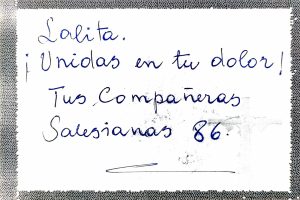 Lalita.
¡Unidas en tu dolor!
Tus Compañeras
Salesianas 86.